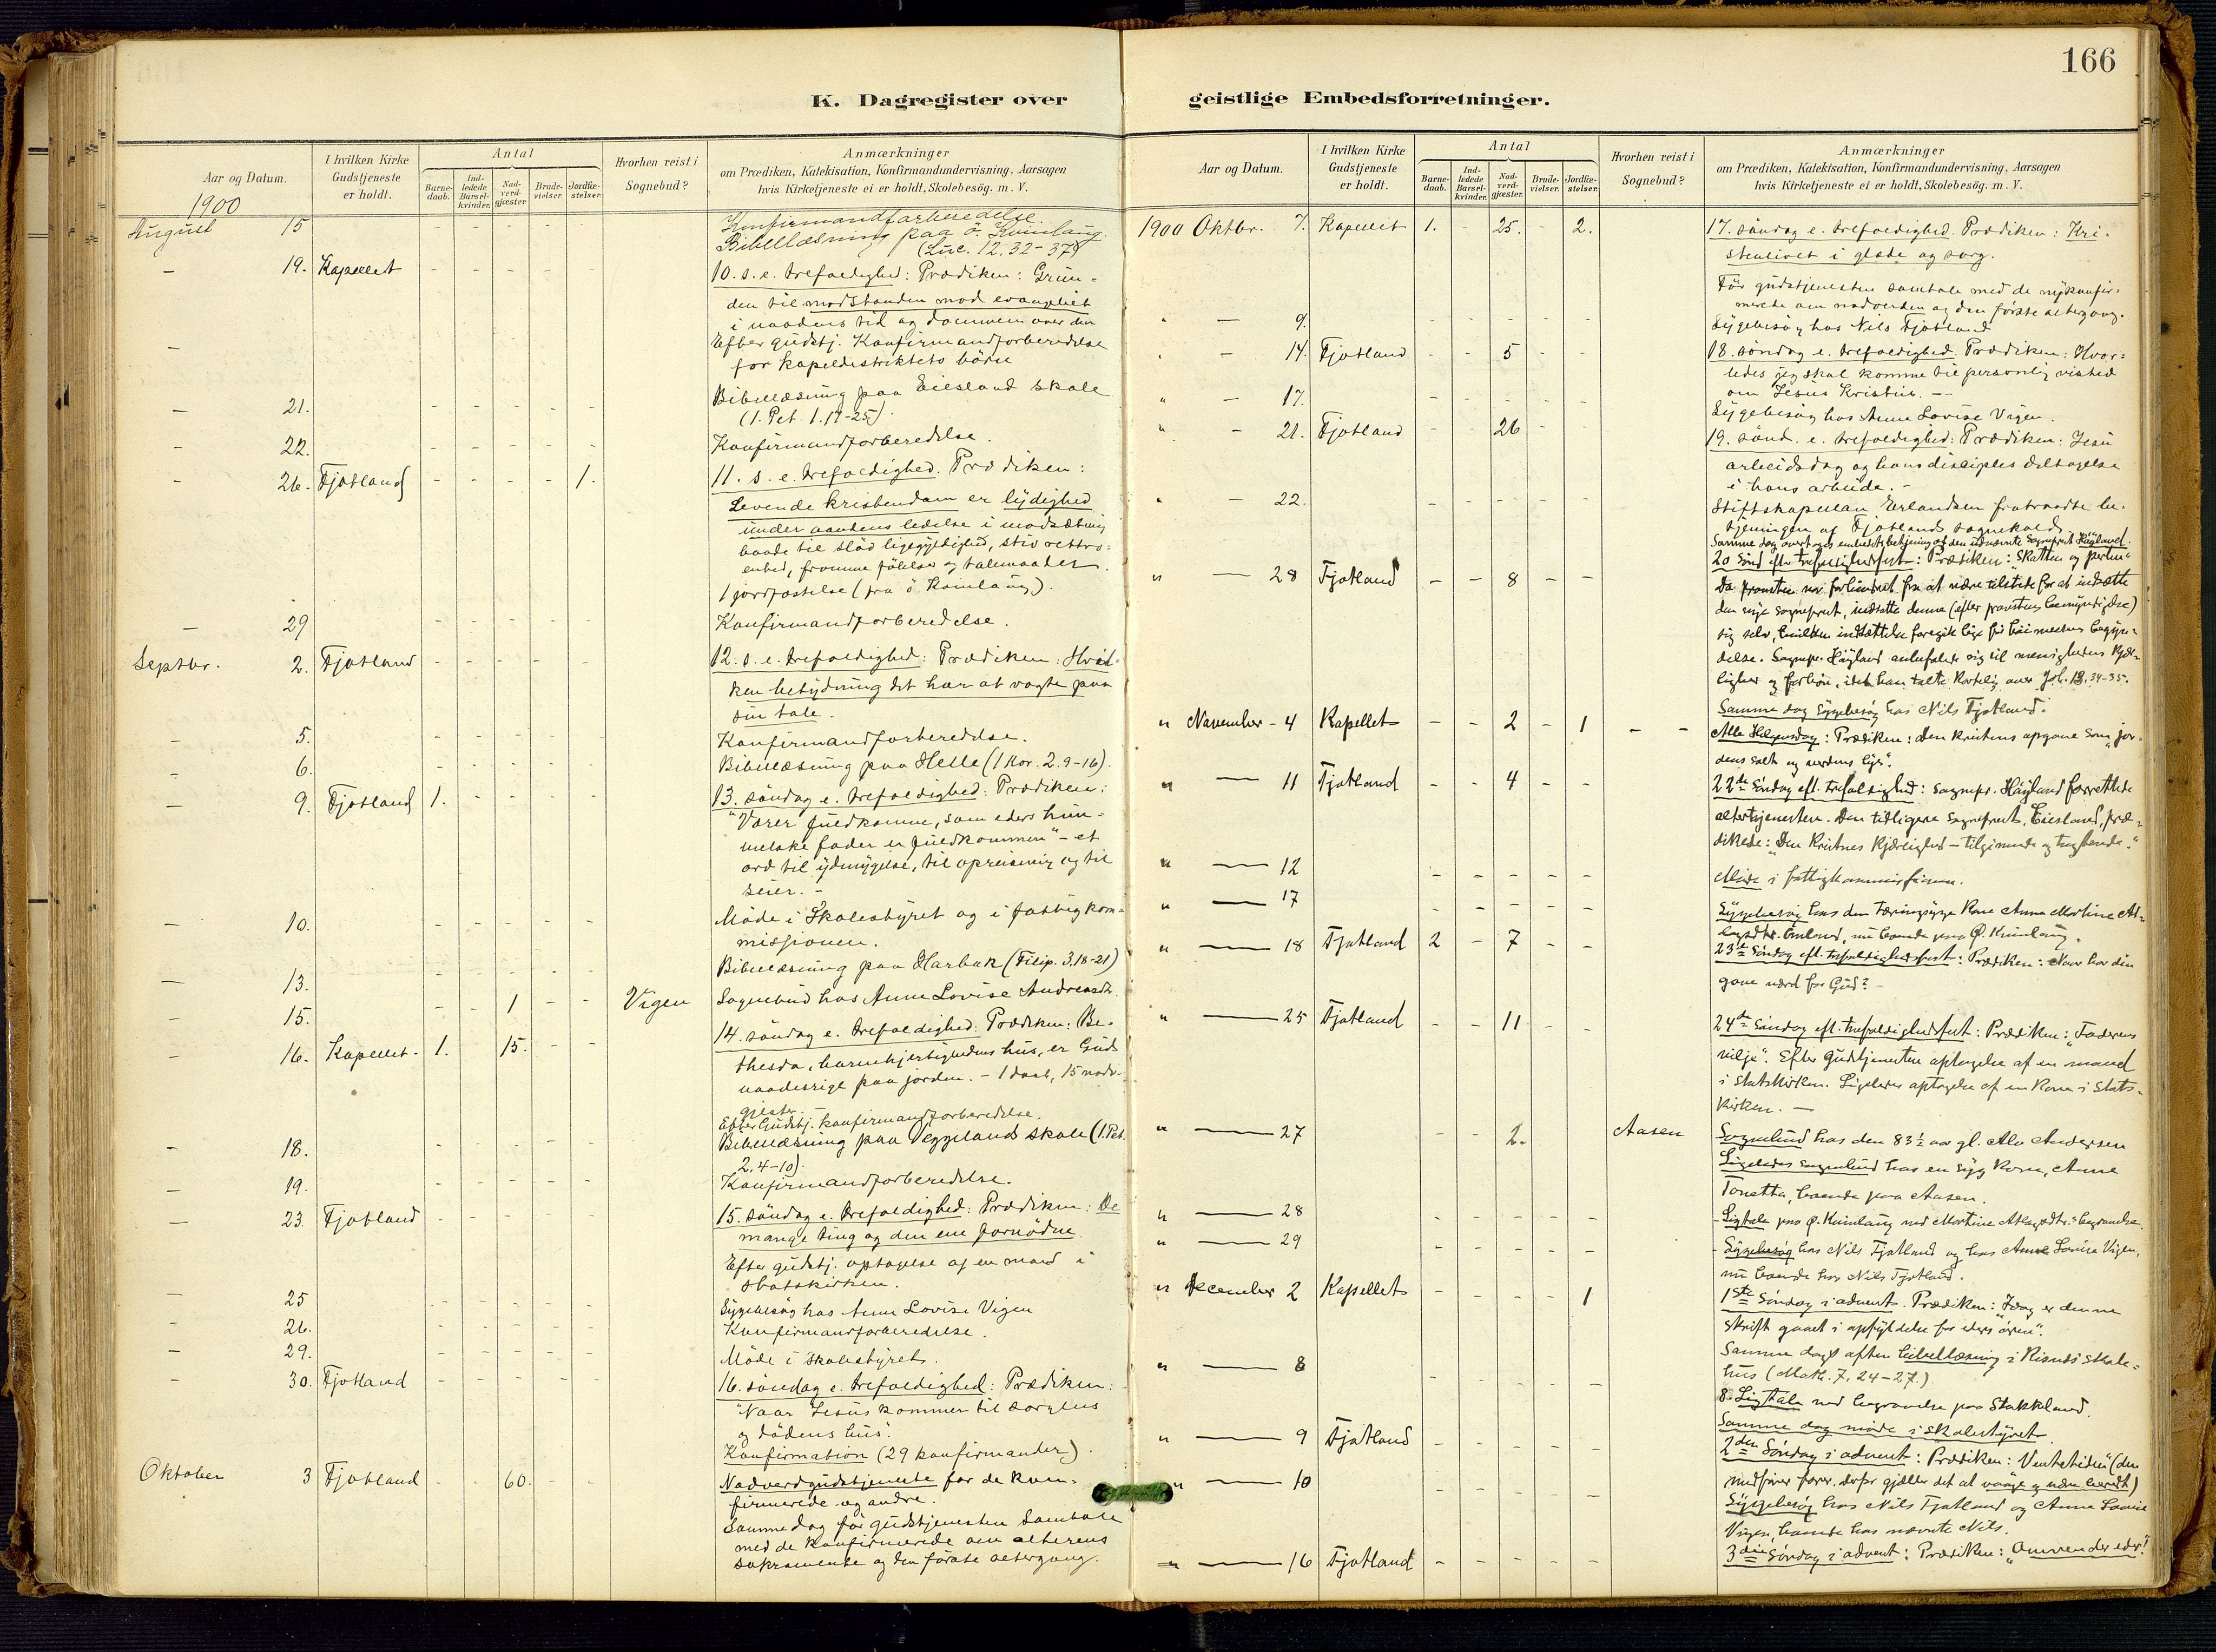 166
K. Dagregister over
geistlige Embedsforretninger.
Aar og Datum.
I hvilken Kirke Gudstjeneste er holdt.
Antal
Barne-daab.
Ind-ledede Barsel-kvinder.
Nad-verd-gjæster.
Brude-vielser.
Jordfæ-stelser.
Hvorhen reist i Sognebud?
Anmærkninger
om Prædiken, Katekisation, Konfirmandundervisning, Aarsagen
hvis Kirketjeneste ei er holdt, Skolebesög. m. V.
1900
August 15 - - - - - Konfirmandforberedelse.
Bibellæsning paa ö. Kvinlaug.
(Luc. 12. 32-37)
- 19. Kapellet - - - - - 10. s. e. trefoldighed: Prædiken: Grun-
den til modstanden mod evangeliet
i naadens tid og dommem over den
- Efter gudstj. Konfirmandforberedelse
for kapeldistriktets börn
- 21. - - - - - Bibellæsning paa Eiesland skole
(1. Pet. 1.17-25).
- 22. - - - - - Konfirmandforberedelse.
- 26. Fjotland - - - - 1. 11. s. e. trefoldighed. Prædiken:
Levende kristendom er lydighed
under aandens ledelse i modsætning
baade til slöd ligegyldighed, stiv rettro-
enhed, fromme fölelser og talemaader.
1 jordfæstelse (fra ö. Kvinlaug).
- 29 - - - - - Konfirmandforberedelse.
Septbr. 2. Fjotland - - - - - 12. s. e. trefoldighed: Prædiken: Hvil-
ken betydning det har at vogte paa
sin tale.
- 5. - - - - - Konfirmandforberedelse.
- 6. - - - - - Bibellæsning paa Helle (1 Kor. 2. 9-16).
- 9. Fjotland 1. - - - - 13. söndag e. trefoldighed: Prædiken:
"Værer fuldkomne, som eders him-
melske fader er fuldkommen" - et
ord til ydmygelse, til opreisning og til
seier. -
- 10. - - - - - Möde i Skolestyret og i fattigkom-
missionen.
- 13. - - - - - Bibellæsning paa Harbak (Filip. 3.18-21)
- 15. - - 1 - - Vigen Sognebud hos Anne Lovise Andreasdtr.
- 16. Kapellet. 1. 15. - - 14. söndag e. trefoldighed: Prædiken: Be-
thesda, barmhjertighedens hus, er Guds
naaderige paa jorden. - 1 daab, 15 nadv.
gjester. -
Efter Gudstj. konfirmandforberedelse.
- 18. - - - - - Bibellæsning paa Veggelands skole (1. Pet.
2. 4-10).
- 19. - - - - - Konfirmandforberedelse.
- 23. Fjotland - - - - - 15. söndag e. trefoldighed: Prædiken: De
mange ting og den ene fornödne.
Efter gudstj. optagelse af en mand i
statskirken.
- 25 - - - - - Sygebesög hos Anne Lovise Vigen
- 26. - - - - - Konfirmandforberedelse.
- 29. - - - - - Möde i skolestyret.
- 30. Fjotland - - - - - 16. söndag e. trefoldighed: Prædiken:
"Naar Jesus kommer til sorgens
og dödens hus".
Konfirmation (29 konfirmander).
Oktober 3 Fjotland - - 60. - - Nadverdgudstjeneste for de kon-
firmerede og andre.
Samme dag för gudstjenesten samtale
med de konfirmerede om alterens
sakramente og den förste altergang.
Aar og Datum.
I hvilken Kirke Gudstjeneste er holdt.
Antal
Barne-daab.
Ind-ledede Barsel-kvinder.
Nad-verd-gjæster.
Brude-vielser.
Jordfæ-stelser.
Hvorhen reist i Sognebud?
Anmærkninger
om Prædiken, Katekisation, Konfirmandundervisning, Aarsagen
hvis Kirketjeneste ei er holdt, Skolebesög. m. V.
1900 Oktbr. 7. Kapellet 1. - 25. - 2. 17. söndag e. trefoldighed. Prædiken: Kri-
stenlivet i glæde og sorg.
För gudstjenesten samtale med de nykonfir-
merede om nadverden og den förste altergang.
" - 9. - - - - - Sygebesög hos Nils Fjotland
" - 14. Fjotland - - 5 - - 18. söndag e. trefoldighed. Prædiken: Hvor-
ledes jeg skal komme til personlig vished
om Jesus Kristus. --
" - 17. - - - - - Sygebesög hos Anne Lovise Vigen.
" - 21. Fjotland - - 26 - - 19. sönd. e. trefoldighed: Prædiken: Jesu
arbeidsdag og hans disciples deltagelse
i hans arbeide. -
" - 22. - - - - - Stiftskapellan Erlandsen fratraadte be-
tjeningen af Fjotlands sognekald.
Samme dag overtoges embedets betjening af den udnævnte Sogneprest Høyland.
" - 28 Fjotland - - 8 - - 20 Sönd efter trefoldighedsfest: Prædiken: "Skatten og perlen"
Da provsten var forhindret fra at være tilstede for at indsætte
den nye sogneprest, indsatte denne (efter provstens bemyndigelse)
sig selv, hvilken indsættelse foregik lige för höimessens begyn-
delse. Sognepr. Høyland anbefalede sig til menighedens kjær-
lighed og forbön, idet han talte kortelig over Joh. 13. 34-35.
Samme dag Sygebesög hos Nils Fjotland.
" November - 4 Kapellet - - 2 - 1 - - Alle Helgensdag: Prædiken: Den kristens opgave som "jor-
dens salt og verdens lys".
" - 11 Fjotland - - 4 - - 22de Söndag eft. trefoldighed: Sognepr. Høyland forrettede
altertjenesten. Den tidligere Sogneprest, Eiesland, præ-
dikede: "Den Kristnes kjærlighed - tilgivende og
" - 12 - - - - - Möde i fattigkommissionen.
" - 17 - - - - - Sygebesög hos den tæringssyge Kone Anna Martine At-
lagsdtr. Omland, nu boende paa Ø. Kvinlaug.
" - 18 Fjotland 2 - 7 - - 23de Söndag eft. trefoldighedsfest: Prædiken: Hvor har din
gave værd for Gud? -
" - 25 Fjotland - - 11 - - 24de Söndag eft. trefoldighedsfest: Prædiken: "Faderens
vilje". Efter Gudstjenesten optagelse af en mand
i Statskirken. Ligeledes optagelse af en Kone i Stats-
kirken. -
" - 27 - - 2. Aasen Sognebud hos den 83½ aar gl. Alv Andersen
Ligeledes sognebud hos en syg Kone, Anne
Tonetta, boende paa Aasen.
" - 28 - - - - - Ligtale paa Ø. Kvinlaug ved Martine Atlagsdtr.s begravelse.
" - 29 - - - - - Sygebesög hos Nils Fjotland og hos Anne Lovise Vigen,
nu boende hos Nils Fjotland.
" December 2 Kapellet - - - - 1 1ste Söndag i advent. Prædiken: "Idag er denne
skrift gaaet i opfyldelse for eders ören".
Samme dags aften bibellæsning i Risnes skole-
hus (Math. 7, 24-27.)
" - 8 - - - - - 8. Ligtale ved begravelse paa Stakkland.
Samme dag möde i skolestyret.
" - 9 Fjotland - - - - - 2den Söndag i advent: Prædiken: Ventetiden" (den
medfører farer. derfor gjælder det at vaage og være beredt)
" - 10 - - - - - Sygebesög hos Nils Fjotland og Anne Lovise
Vigen, boende hos nævnte Nils.
" - 16 Fjotland - - - - - 3die Söndag i advent: Prædiken: "Omvender eder!"